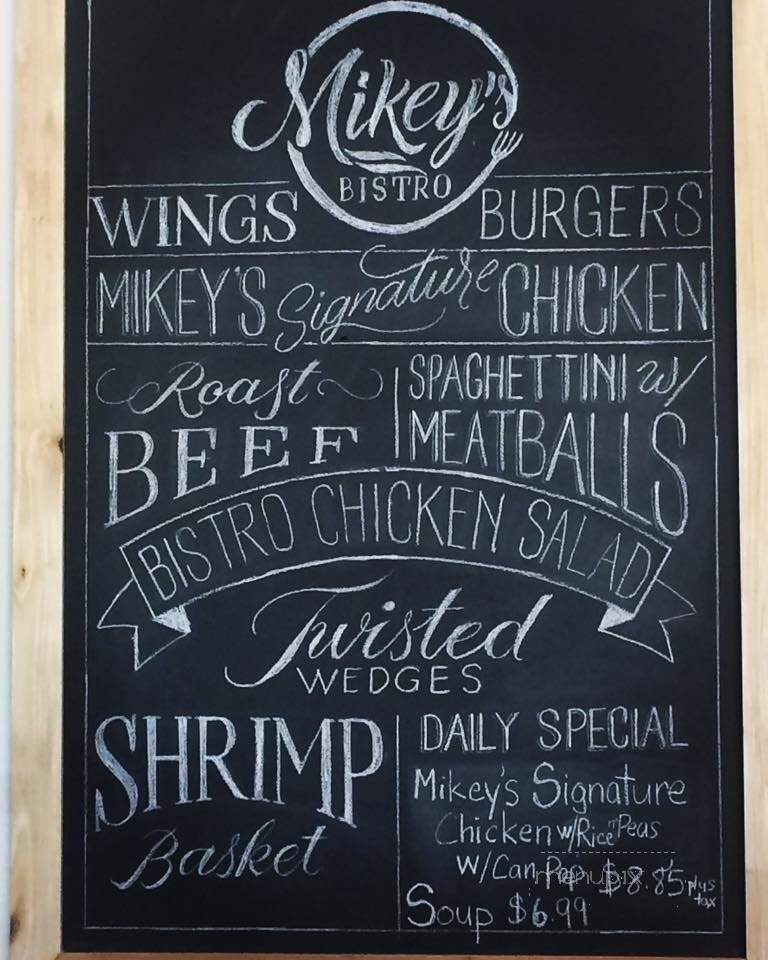 Mikey's
BISTRO
WINGS BURGERS
MIKEY'S Signature CHICKEN
Roast
BEEF
SPAGHETTINI w/
MEATBALLS
BISTRO CHICKEN SALAD
Twisted
WEDGES
SHRIMP
Basket
DAILY SPECIAL
Mikey's Signature
Chicken w/Rice n Peas
w/Can Pop $8.85 plus tax
Soup $6.99
menupix